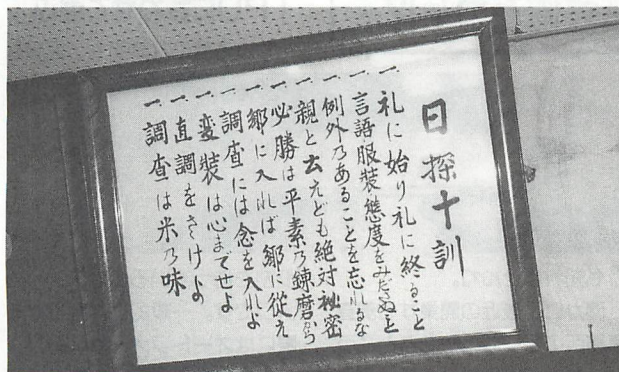 日探十訓
一、礼に始り礼に終ること
一、言語服装態度をみださぬこと
一、例外乃あることを忘れるな
一、親と云えども絶対秘密
一、必勝は平素乃錬磨から
一、郷に入れば郷に従え
一、調査には念を入れよ
一、変装は心までせよ
一、直調をさけよ
一、調査は米乃味